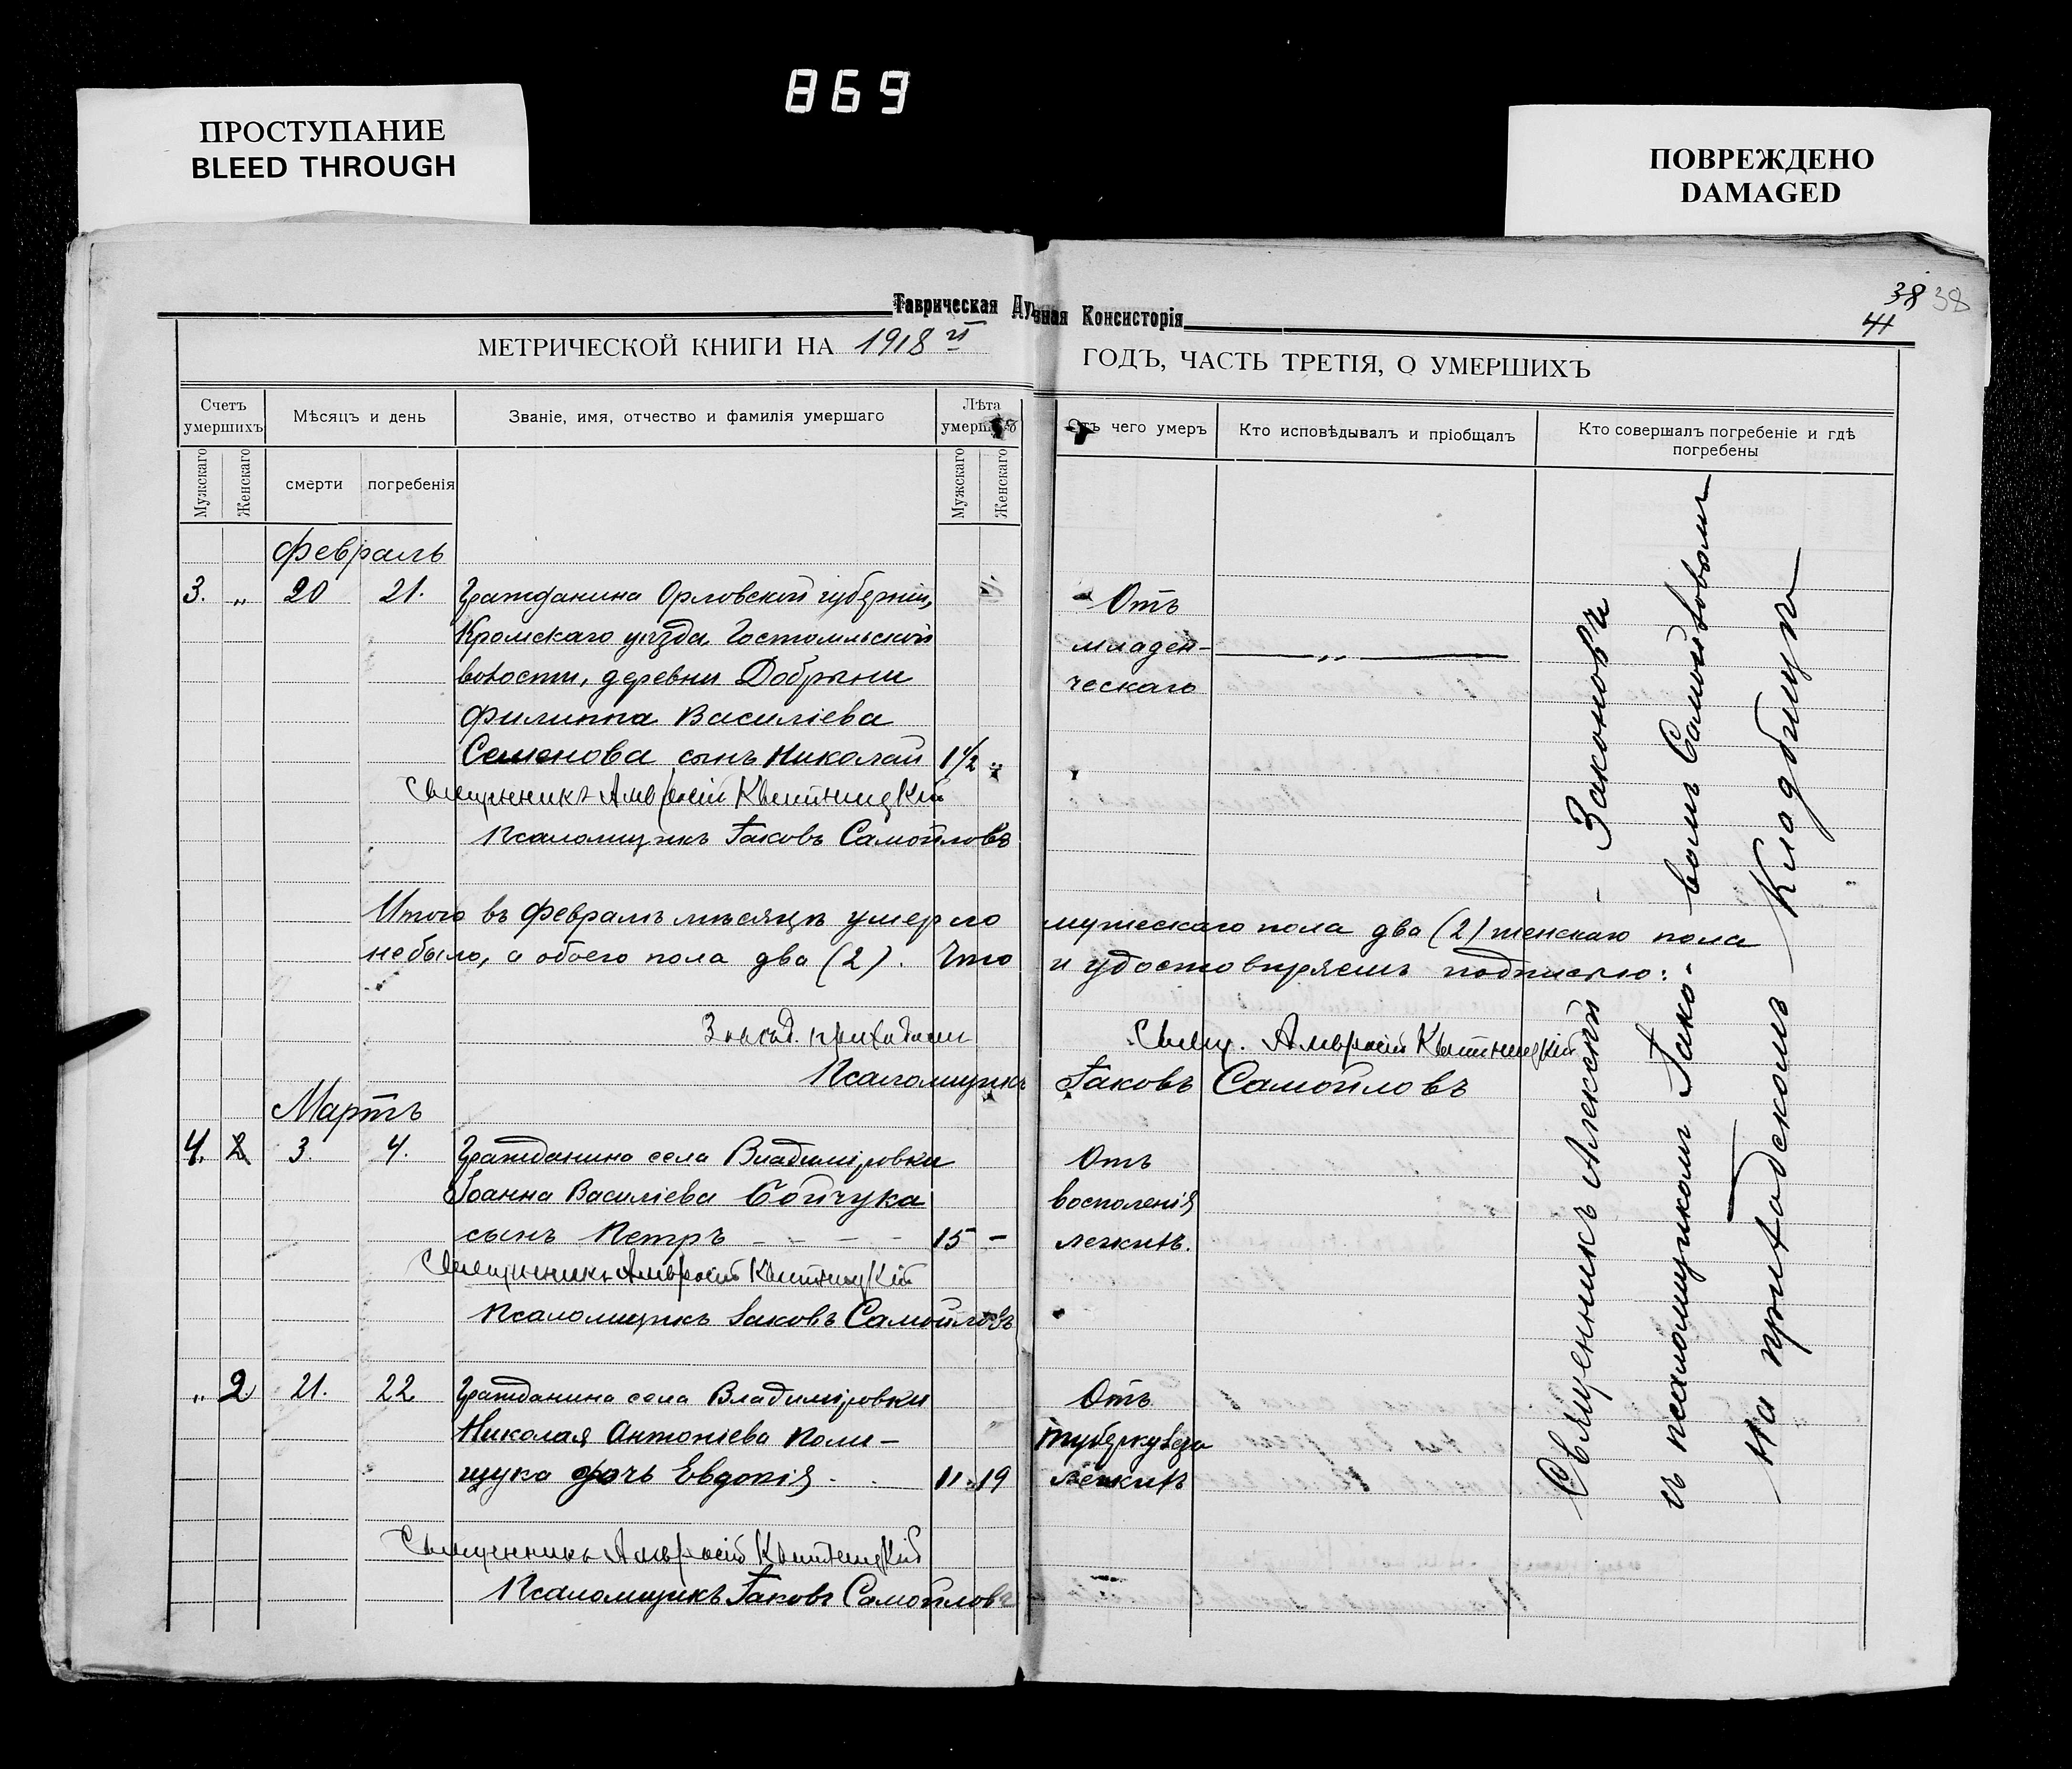 869
ПРОСТУПАНИЕ
BLEED THROUGH
ПОВРЕЖДЕНО
DAMAGED
38 38
41
Таврическая Духовная Консисторія
МЕТРИЧЕСКОЙ КНИГИ НА 1918 й ГОДЪ, ЧАСТЬ ТРЕТІЯ, О УМЕРШИХЪ
Счетъ умершихъ
Мѣсяцъ и день
Званіе, имя, отчество и фамилія умершаго
Лѣта умершаго
Отъ чего умеръ
Кто исповѣдывалъ и пріобщалъ
Кто совершалъ погребеніе и гдѣ погребены
Мужскаго
Женскаго
смерти
погребенія
Мужскаго
Женскаго
Февраль
3. „ 20 21. Гражданина Орловской губерніи, Отъ
Кромскаго уѣзда, Гостомльской младен-
волости, деревни Добрыни ческаго
Филиппа Василіева
Семенова сынъ Николай 1 1/2 „
Священникъ Амвросій Квитницкій
Псаломщикъ Іаковъ Самойловъ
Итого въ Февралѣ мѣсяцѣ умерло мужескаго пола два (2) женскаго пола
не было, а обоего пола два (2). Что и удостовѣряемъ подписью:
Завѣд. приходомъ Свящ. Амвросій Квитницкій
Псаломщикъ Іаковъ Самойловъ
Мартъ
4. 2 3. 4. Гражданина села Владиміровки Отъ
Іоанна Василіева Бойчука восполенія
сынъ Петръ - - - - 15 - легкихъ.
Священникъ Амвросій Квитницкій
Псаломщикъ Іаковъ Самойловъ
„ 2 21. 22 Гражданина села Владиміровки Отъ
Николая Антоніева Поли- туберкулеза
щука дочь Евдокія - . 11 19 легкихъ
Священникъ Амвросій Квитницкій
Псаломщикъ Іаковъ Самойловъ
Священникъ Алексѣй - Законовъ
съ псаломщикомъ Іако- вомъ Самойловымъ
на приходскомъ кладбищѣ